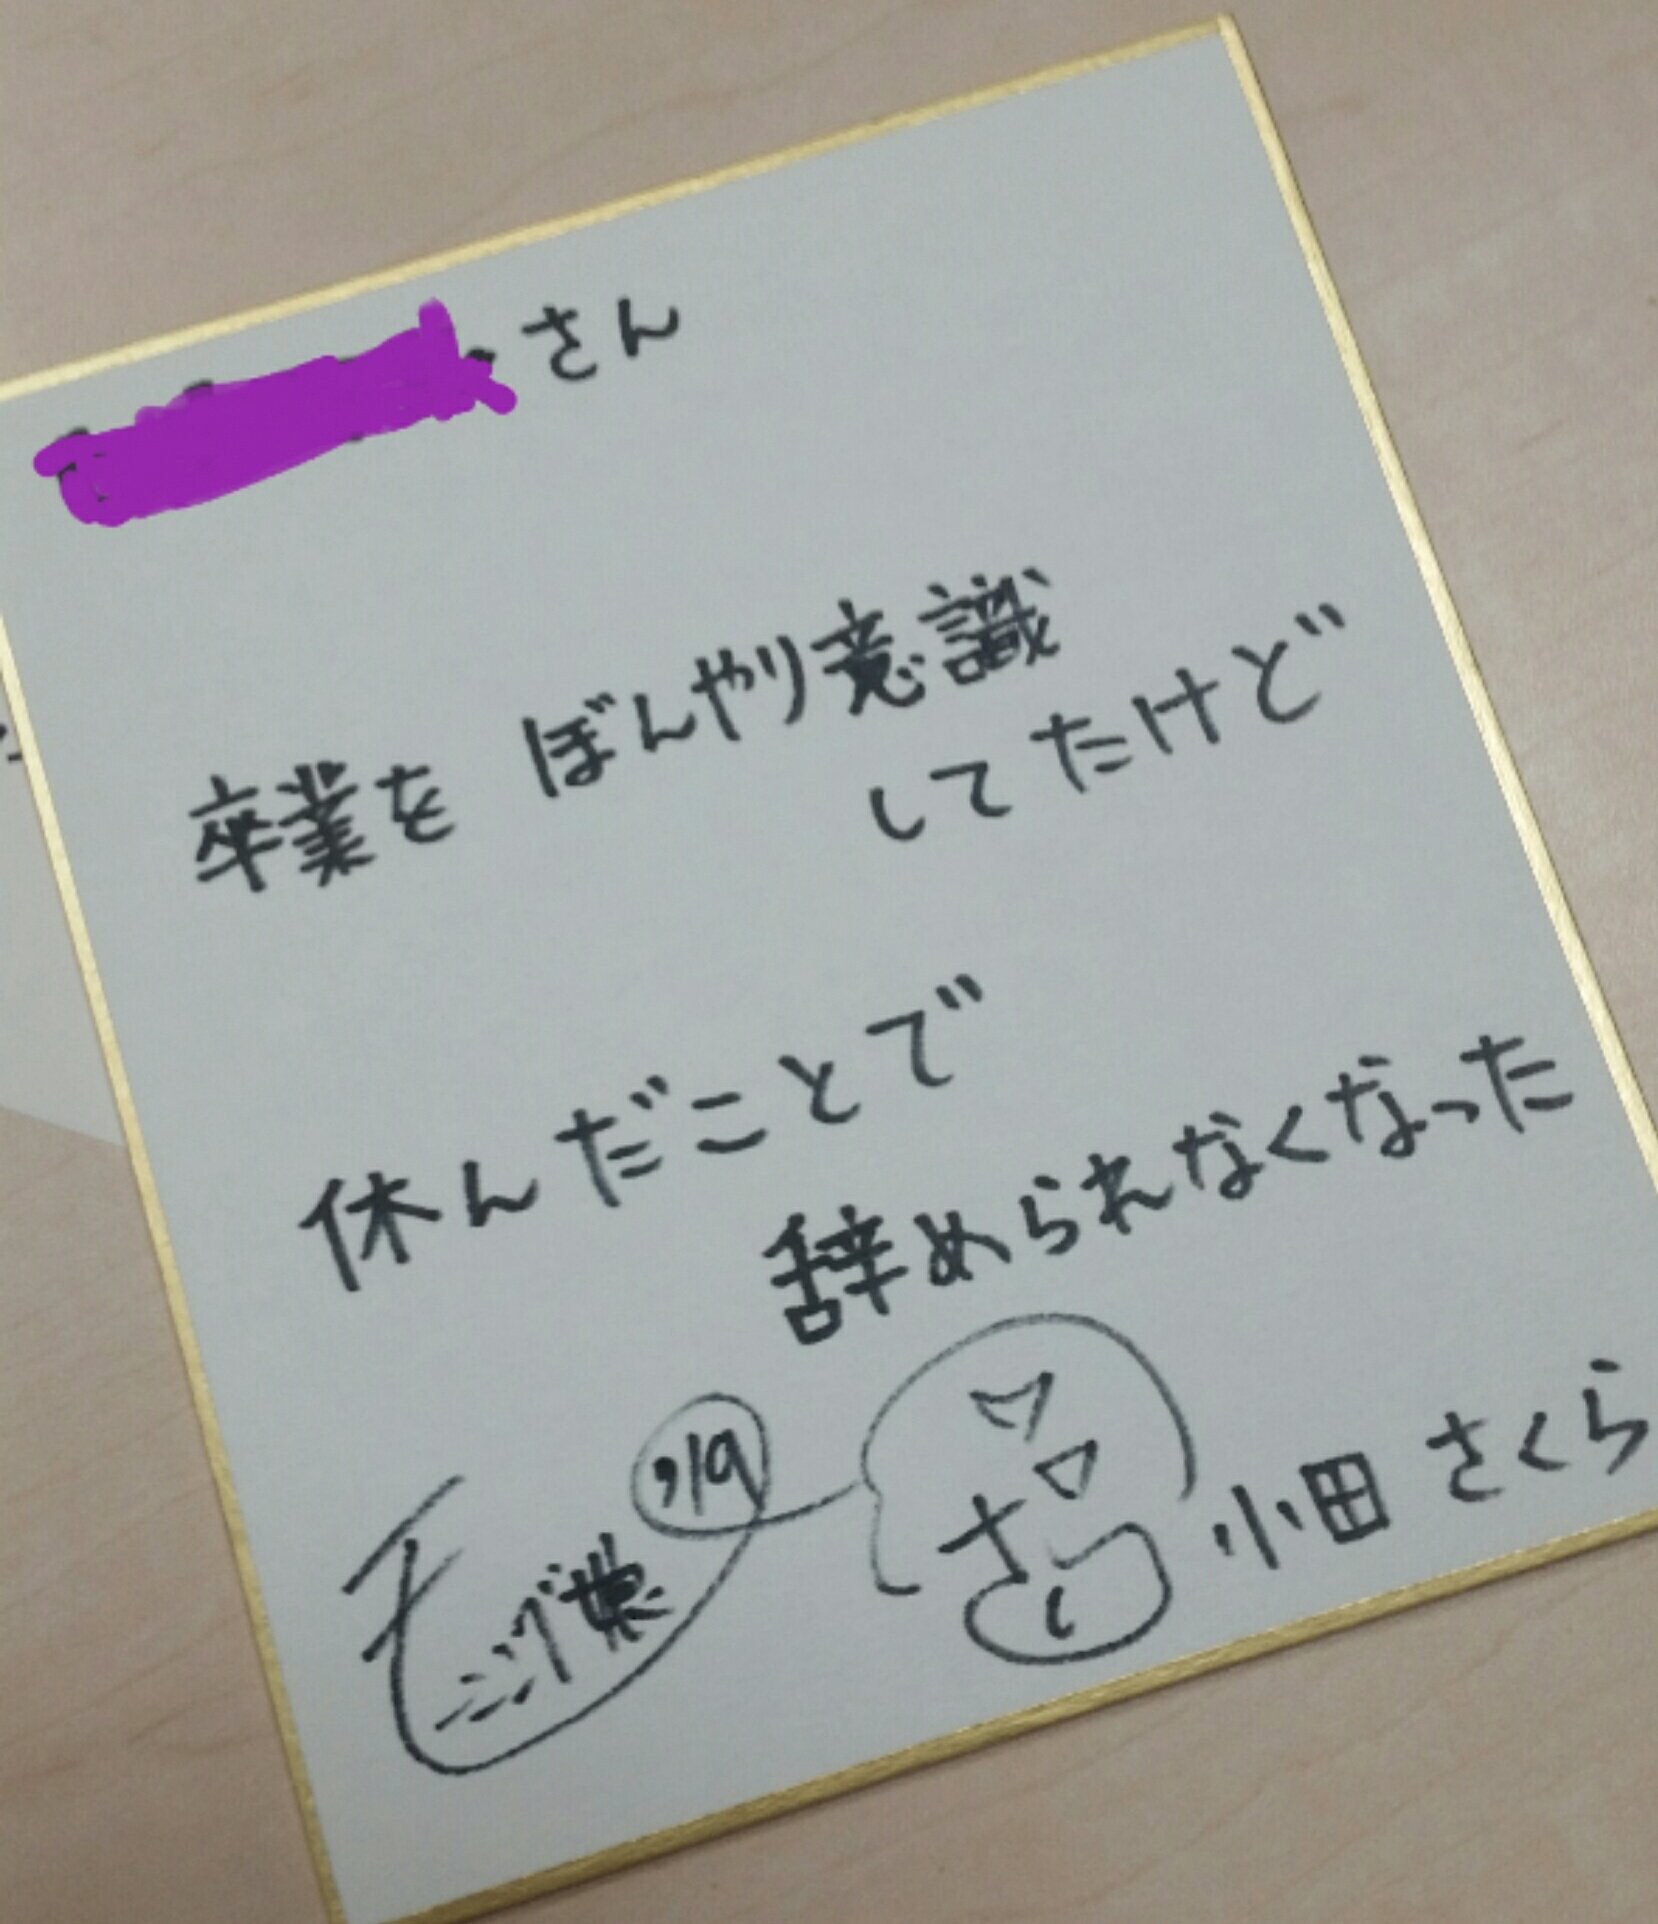 さん
卒業を ぼんやり意識
してたけど
休んだことで
辞められなくなった
'19
小田 さくら